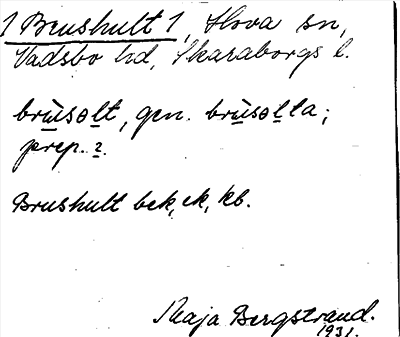 1 Brushult 1, Hova sn,
Vadsbo hd, Skaraborgs l.
brùsəlt, gen. brùsəlta;
prep. i.
Brushult bck, ek, kb.
Maja Bergstrand.
1931.